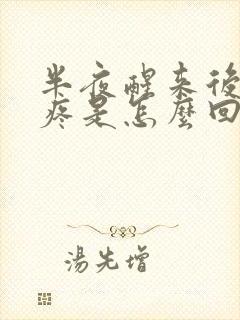 半夜醒来後
疼是怎麼回
湯先增